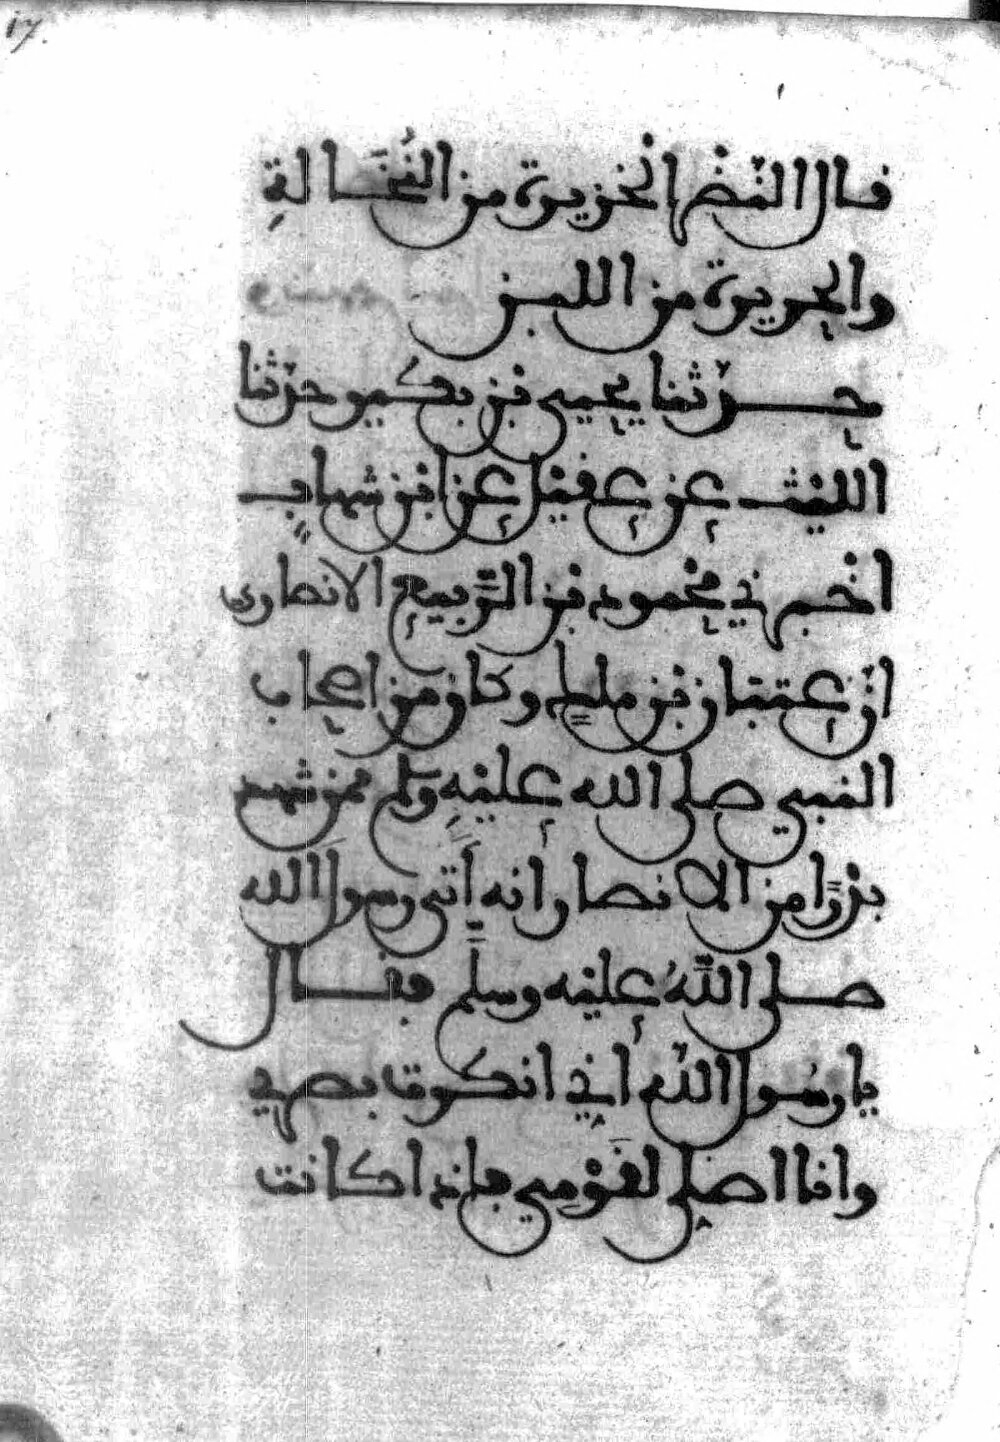 17
قال النضر الخزيرة من النخالة
والحريرة من اللبن
حدثنا يحيى بن بكير حدثنا
الليث عن عقيل عن ابن شهاب
اخبرني محمود بن الربيع الانصاري
ان عتبان بن ملك وكان من اصحاب
النبي صلى الله عليه وسلم ممن شهد
بدرا من الانصار انه أتى رسول الله
صلى الله عليه وسلم فقال
يا رسول الله أني انكرت بصري
وانا اصلي لقومي فاذا كانت